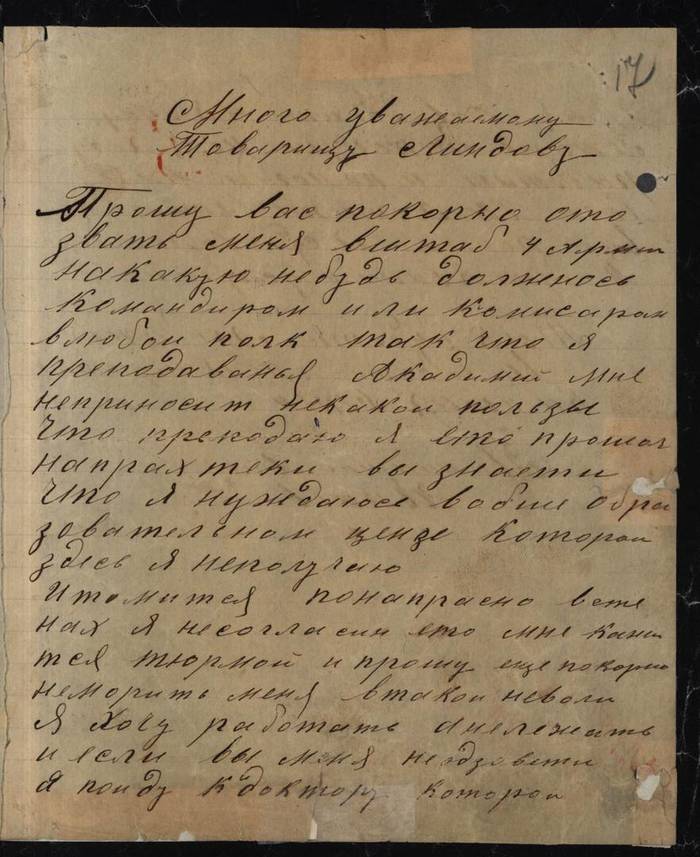 17
Много уважаемому
Товарищу Линдову
Прошу вас покорно ото
звать меня вштаб 4 Армии
накакую небудь должнось
командиром или комисаром
влюбои полк так что я
преподаванья Академии мне
неприносит некакои пользы
что преподаю я ето прошол
напрахтеки вы знаети
что я нуждаюсь вобще обра
зовательном цензе которои
здесь я неполучаю
Итомится понапрасно встe
нах я несогласин ето мне кажи
тся тюрмой и прошу еще покорно
неморить меня втакои неволи
я хочу работать анележать
и если вы меня неодзовети
я поиду кдоктору которои